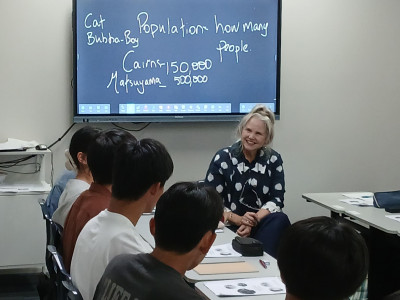 Cat
Bubba-Boy
Population- how many
people
Cairns- 150,000
Matsuyama- 500,000